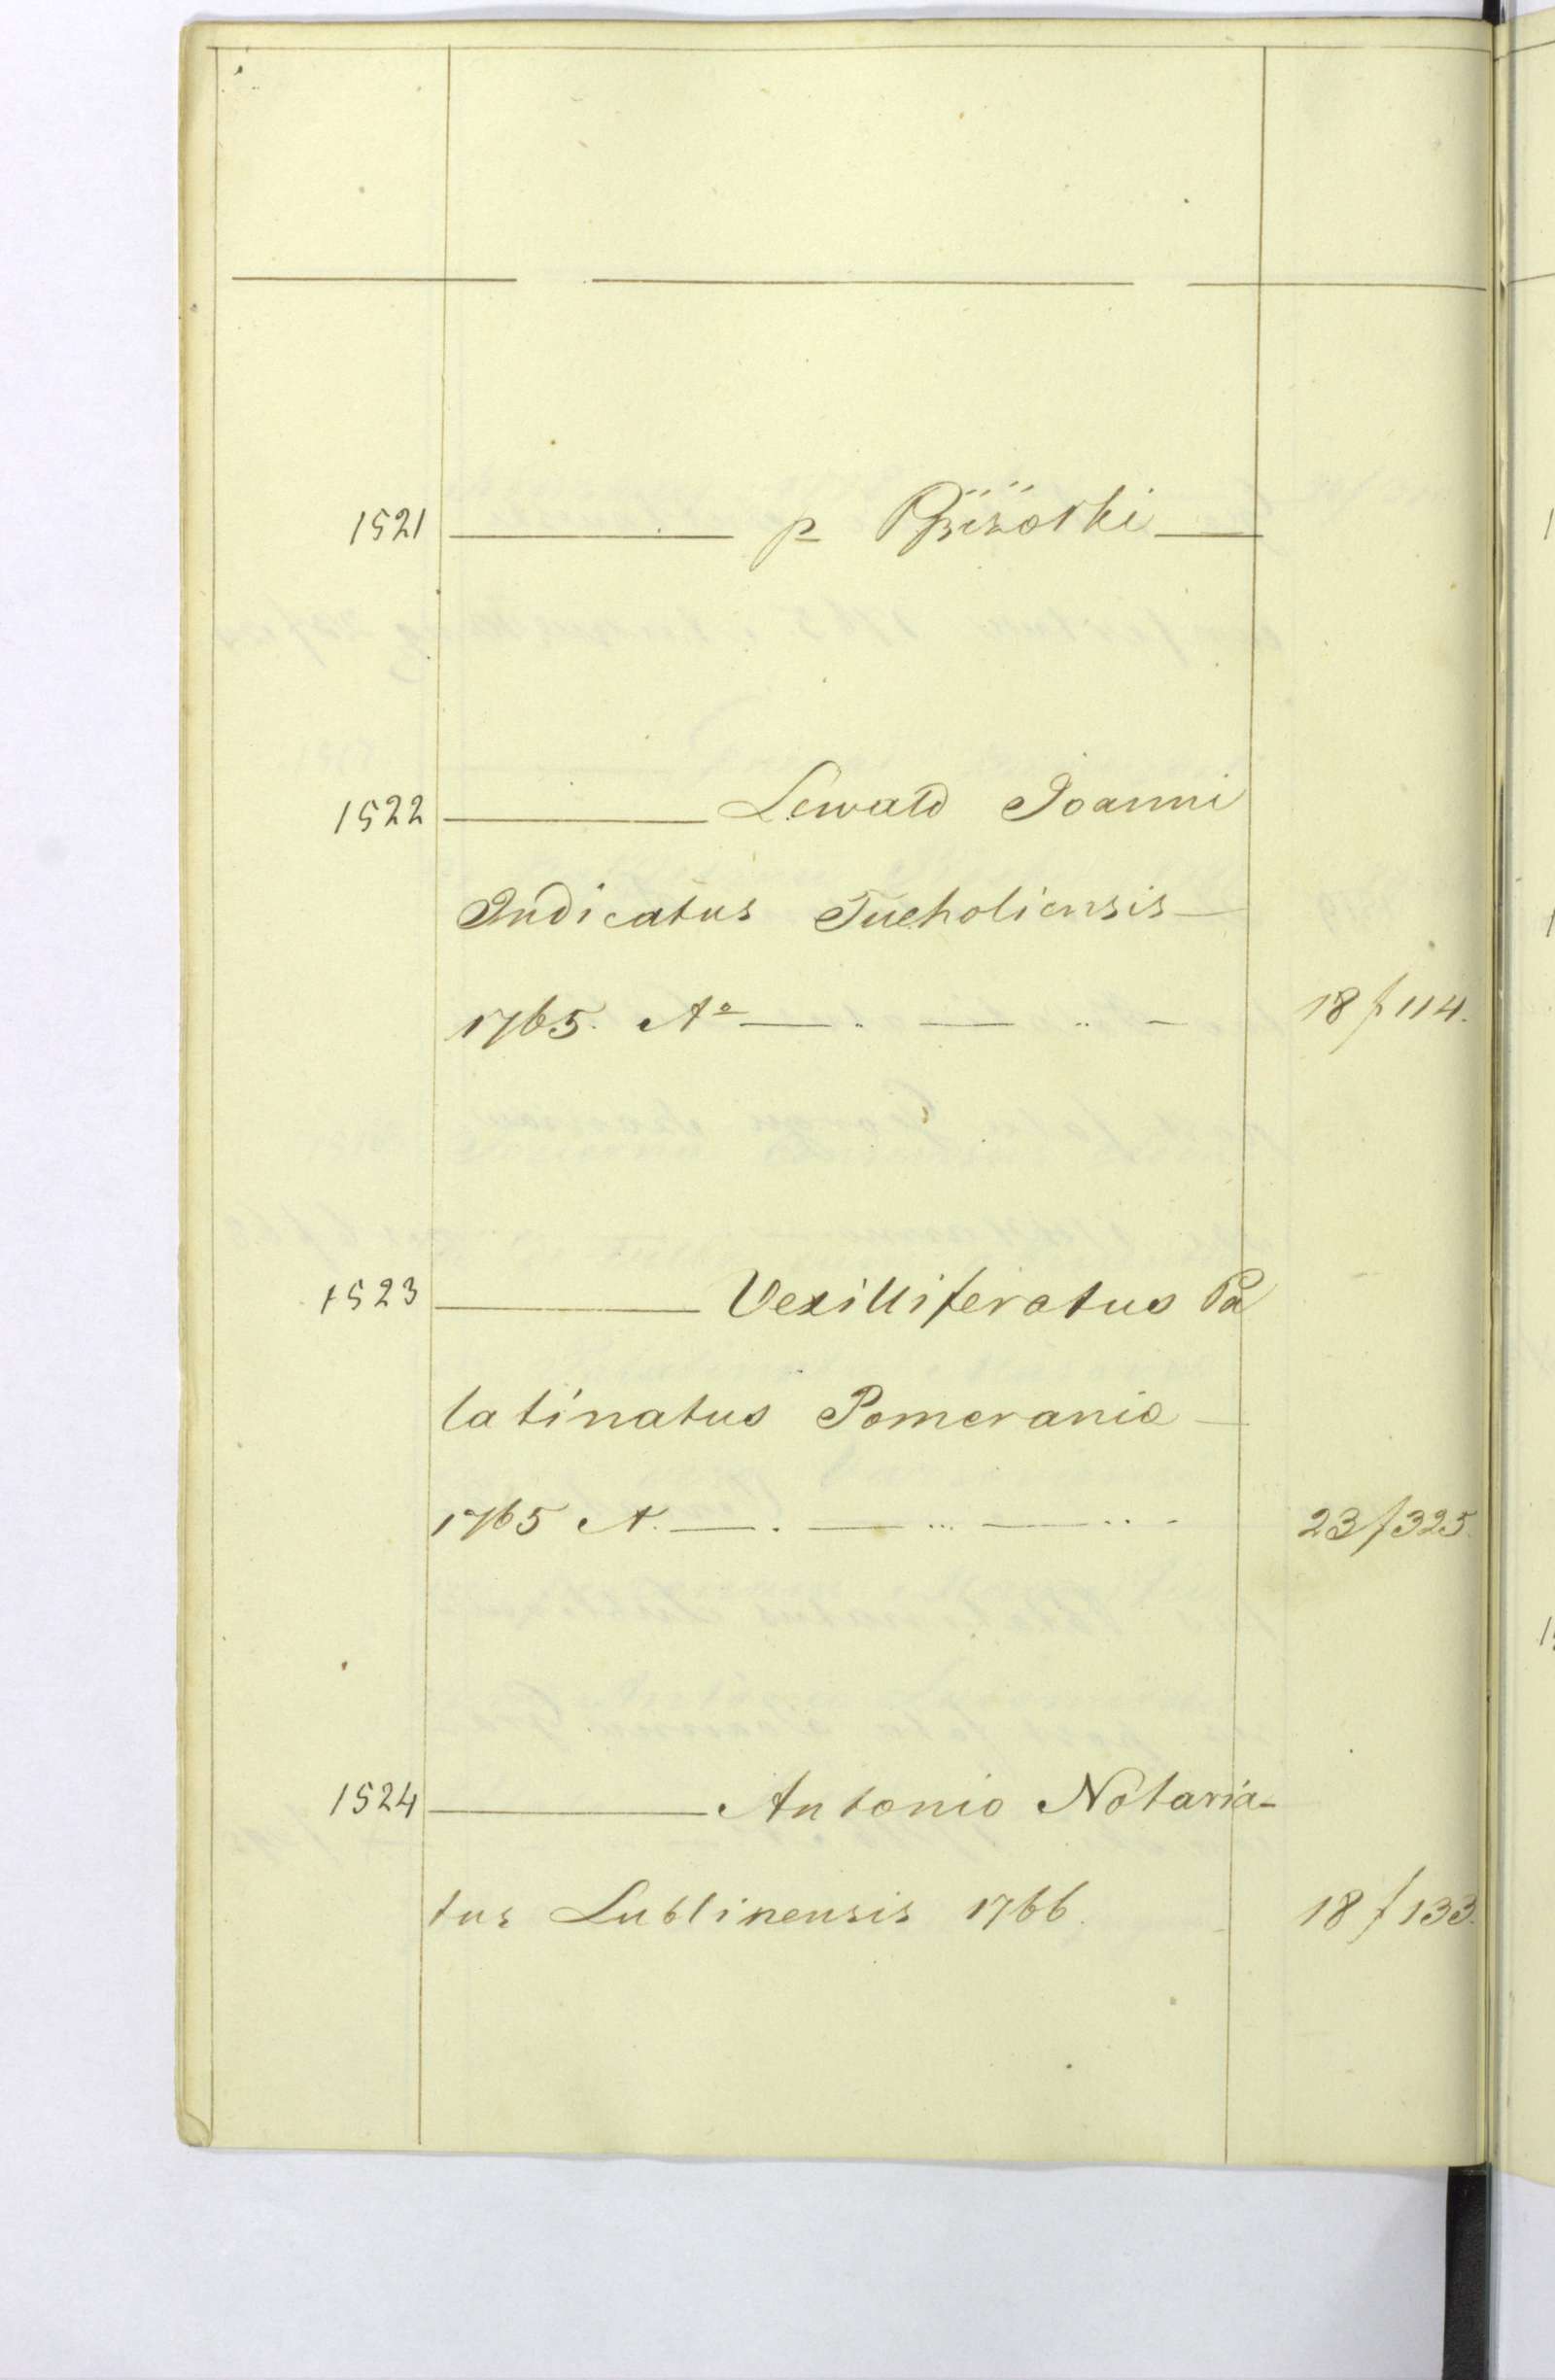 1521 ——— p
1522 ——— Lewald Joanni
Judicatus Tucholiensis —
1765. Aº — .. — .. — 18 f 114.
1523 ——— Vexilliferatus Pa
latinatus Pomerania —
1765 A. — . — ... — .. - 23 f 325.
1524 ——— Antonio Notaria-
tus Lublinensis 1766. 18 f 133.